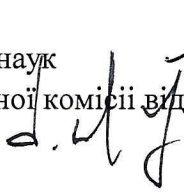 наук
ної комісії від